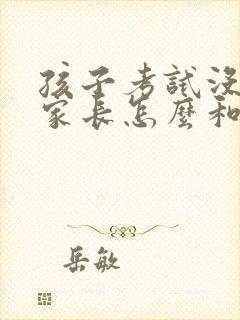 孩子考試沒
家長怎麼和
岳敏